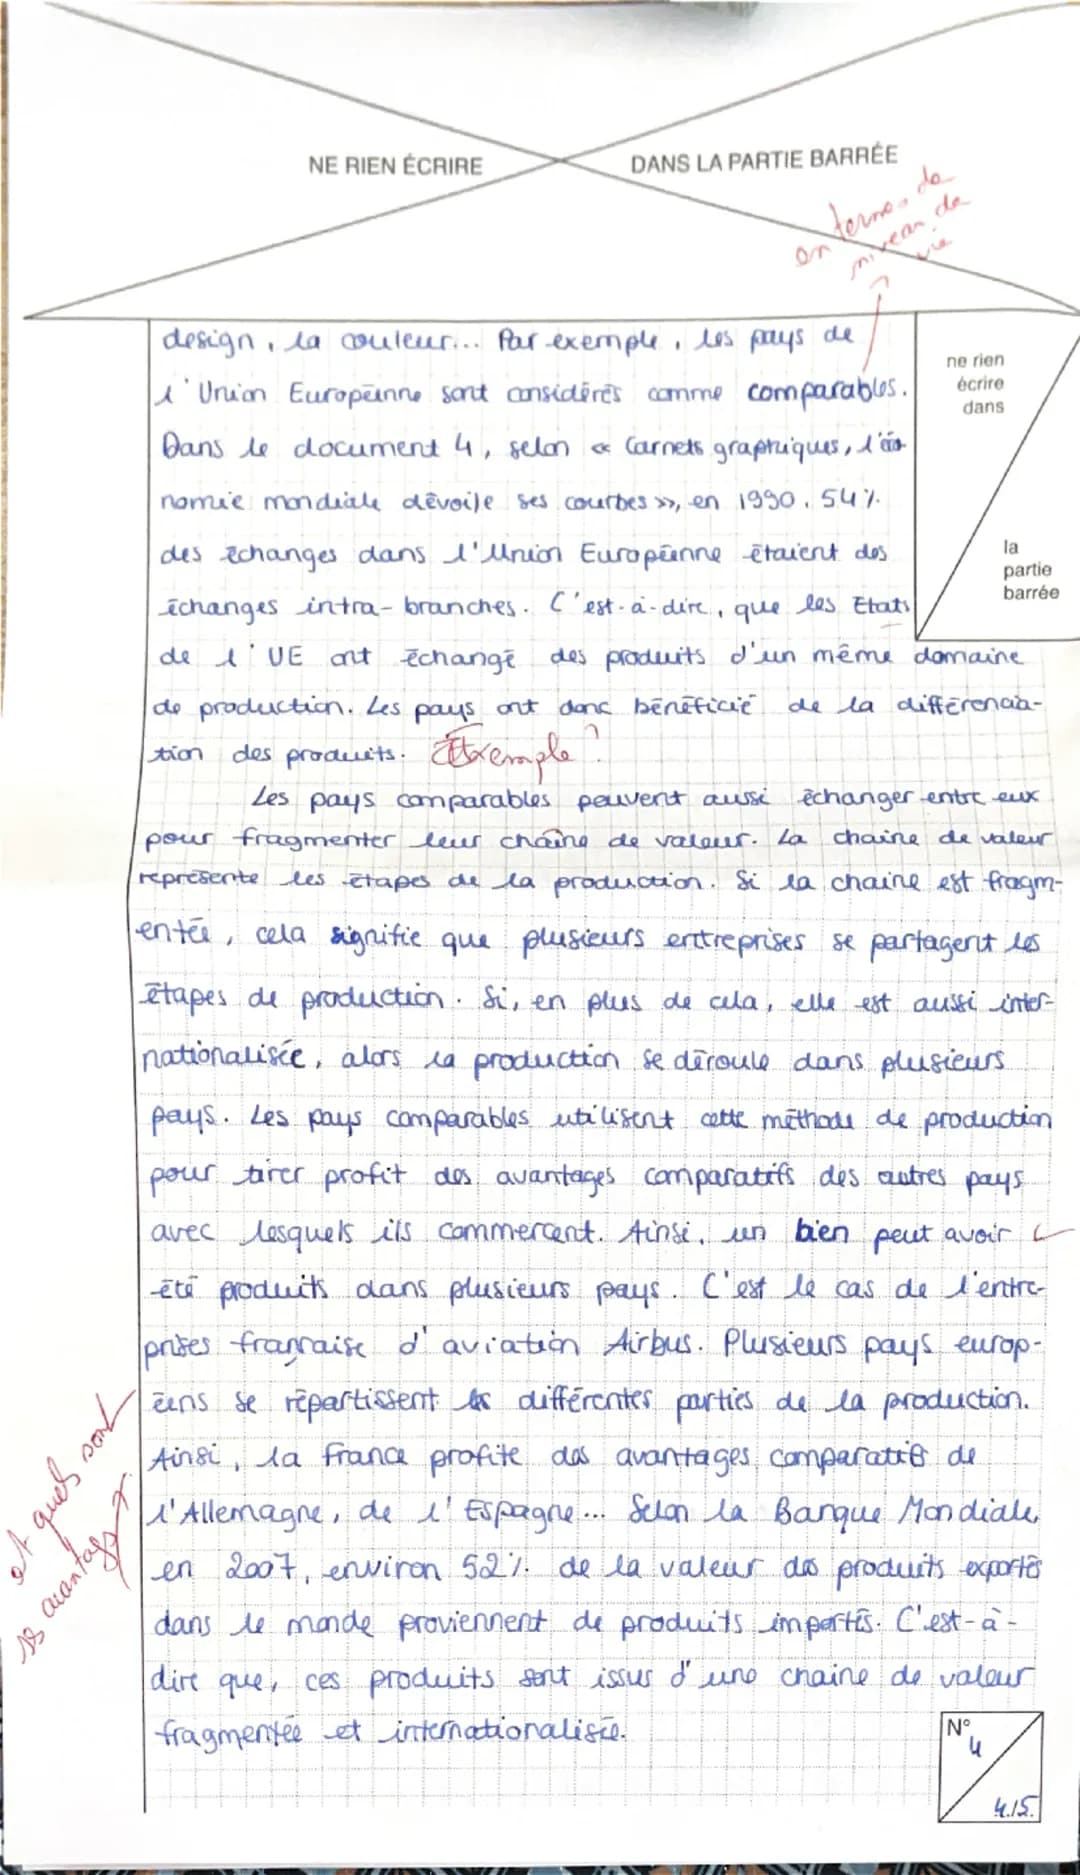 NE RIEN ÉCRIRE
DANS LA PARTIE BARRÉE
en termes de
niveau de
vie
design, la couleur... Par exemple, les pays de
l'Union Européenne sont considérés comme comparables.
Dans le document 4, selon « Carnets graphiques, l'éco-
nomie mondiale dévoile ses courbes », en 1990, 54%
des échanges dans l'Union Européenne étaient des
échanges intra-branches. C'est-à-dire, que les Etats
de l'UE ont échangé des produits d'un même domaine
de production. Les pays ont donc bénéficié de la différencia-
tion des produits. Exemple ?
ne rien
écrire
dans
la
partie
barrée
Les pays comparables peuvent aussi échanger entre eux
pour fragmenter leur chaîne de valeur. La chaine de valeur
représente les étapes de la production. Si la chaine est fragm-
entée, cela signifie que plusieurs entreprises se partagent les
étapes de production. Si, en plus de cela, elle est aussi inter-
nationalisée, alors la production se déroule dans plusieurs
pays. Les pays comparables utilisent cette méthode de production
pour tirer profit des avantages comparatifs des autres pays
avec lesquels ils commercent. Ainsi, un bien peut avoir
été produits dans plusieurs pays. C'est le cas de l'entre-
prises française d'aviation Airbus. Plusieurs pays europ-
éens se répartissent les différentes parties de la production.
Ainsi, la France profite des avantages comparatifs de
l'Allemagne, de l'Espagne... Selon la Banque Mondiale,
en 2007, environ 52% de la valeur des produits exportés
dans le monde proviennent de produits importés. C'est-à-
dire que, ces produits sont issus d'une chaine de valeur
fragmentée et internationalisée.
et quels sont
ls avantages ?
N°
4
4/5